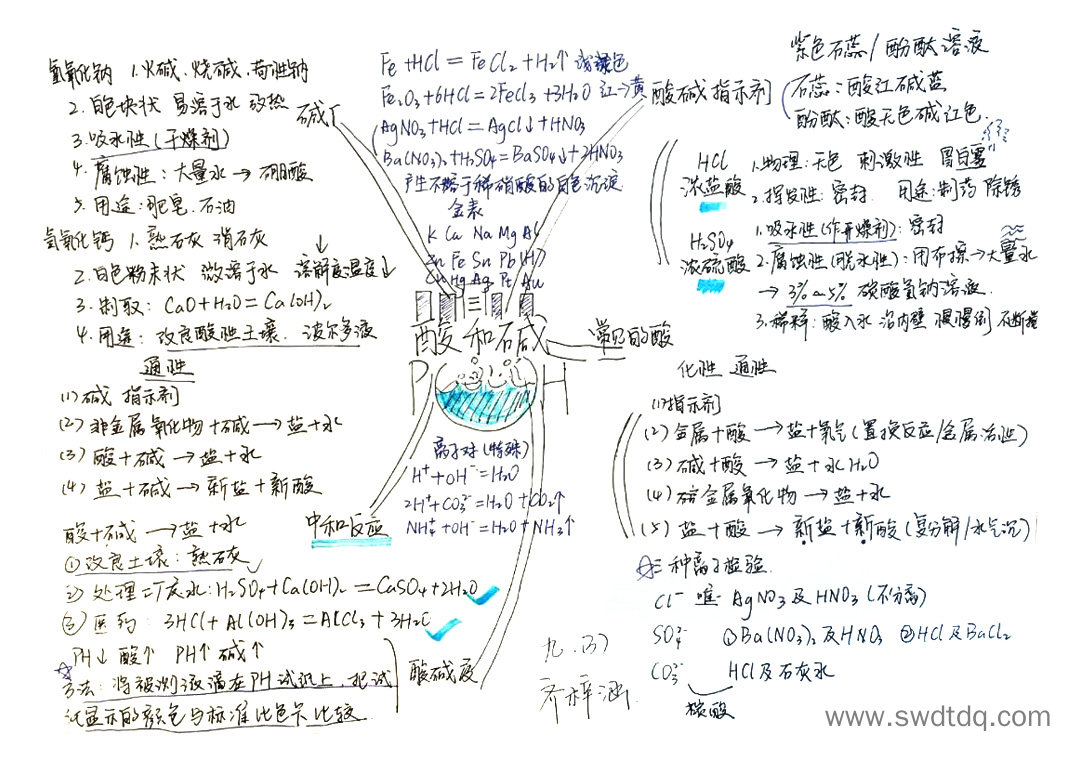 氢氧化钠 1.火碱、烧碱、苛性钠
2.白色块状 易溶于水 放热
3.吸水性(干燥剂)
4.腐蚀性:大量水→硼酸
5.用途:肥皂.石油
氢氧化钙 1.熟石灰 消石灰
2.白色粉末状 微溶于水 溶解度温度↓
3.制取:CaO+H2O=Ca(OH)2
4.用途:改良酸性土壤.波尔多液
通性
(1)碱 指示剂
(2)非金属氧化物+碱→盐+水
(3)酸+碱→盐+水
(4)盐+碱→新盐+新酸
酸+碱→盐+水
①改良土壤:熟石灰
②处理工厂废水:H2SO4+Ca(OH)2=CaSO4+2H2O
③医药:3HCl+Al(OH)3=AlCl3+3H2O
PH↓酸↑ PH↑碱↑
方法:将被测液滴在PH试纸上,把试
纸显示的颜色与标准比色卡比较.
碱
Fe+HCl=FeCl2+H2↑ 浅绿色
Fe2O3+6HCl=2FeCl3+3H2O 红→黄
AgNO3+HCl=AgCl↓+HNO3
Ba(NO3)2+H2SO4=BaSO4↓+2HNO3
产生不溶于稀硝酸的白色沉淀
K Ca Na Mg Al
Zn Fe Sn Pb (H)
Cu Hg Ag Pt Au
酸和碱
PH
离子对(特殊)
H⁺+OH⁻=H2O
2H⁺+CO3²⁻=H2O+CO2↑
NH4⁺+OH⁻=H2O+NH3↑
中和反应
酸碱度
酸碱指示剂
紫色石蕊/酚酞溶液
石蕊:酸红碱蓝
酚酞:酸无色碱红色
常见的酸
HCl
浓盐酸
1.物理:无色 刺激性 冒白雾
2.挥发性:密封 用途:制药 除锈
H2SO4
浓硫酸
1.吸水性(作干燥剂):密封
2.腐蚀性(脱水性):用布擦→大量水
→3%~5%碳酸氢钠溶液.
3.稀释:酸入水 沿内壁 慢慢倒 不断搅
化性 通性
(1)指示剂
(2)金属+酸→盐+氢气(置换反应/金属活性)
(3)碱+酸→盐+水H2O
(4)碎金属氧化物→盐+水
(5)盐+酸→新盐+新酸(复分解/水气沉)
☆三种离子检验.
Cl⁻ 唯一 AgNO3及HNO3
SO4²⁻ ①Ba(NO3)2及HNO3 ②HCl及BaCl2
CO3²⁻ HCl及石灰水
九.(3)
齐梓涵.
www.swdtdq.com